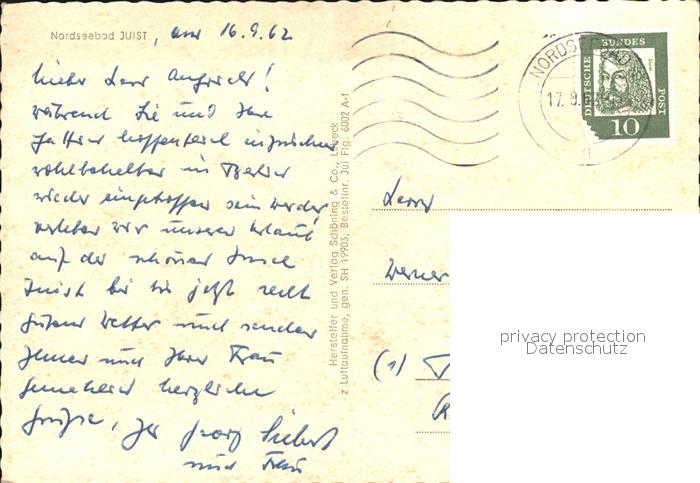 Nordseebad JUIST, am 16.9.62
Lieber Herr Augsreich!
während Sie und Ihre
Gattin hoffentlich inzwischen
wohlbehalten in Berlin
wieder eingetroffen sein werden,
verleben wir unseren Urlaub
auf der schönen Insel
Juist bei bis jetzt recht
gutem Wetter und senden
Ihnen und Ihrer Frau
herzliche
Grüße, Ihr Georg Siebert
und Frau
Hersteller und Verlag Schöning & Co., Lübeck
z Luftaufnahme, gen. SH 19903, Bestellnr. Jui Flg. 6002 A-f
NORDSEEBAD
17.9.
DEUTSCHE BUNDESPOST
10
Herrn
Werner
(1)
privacy protection
Datenschutz